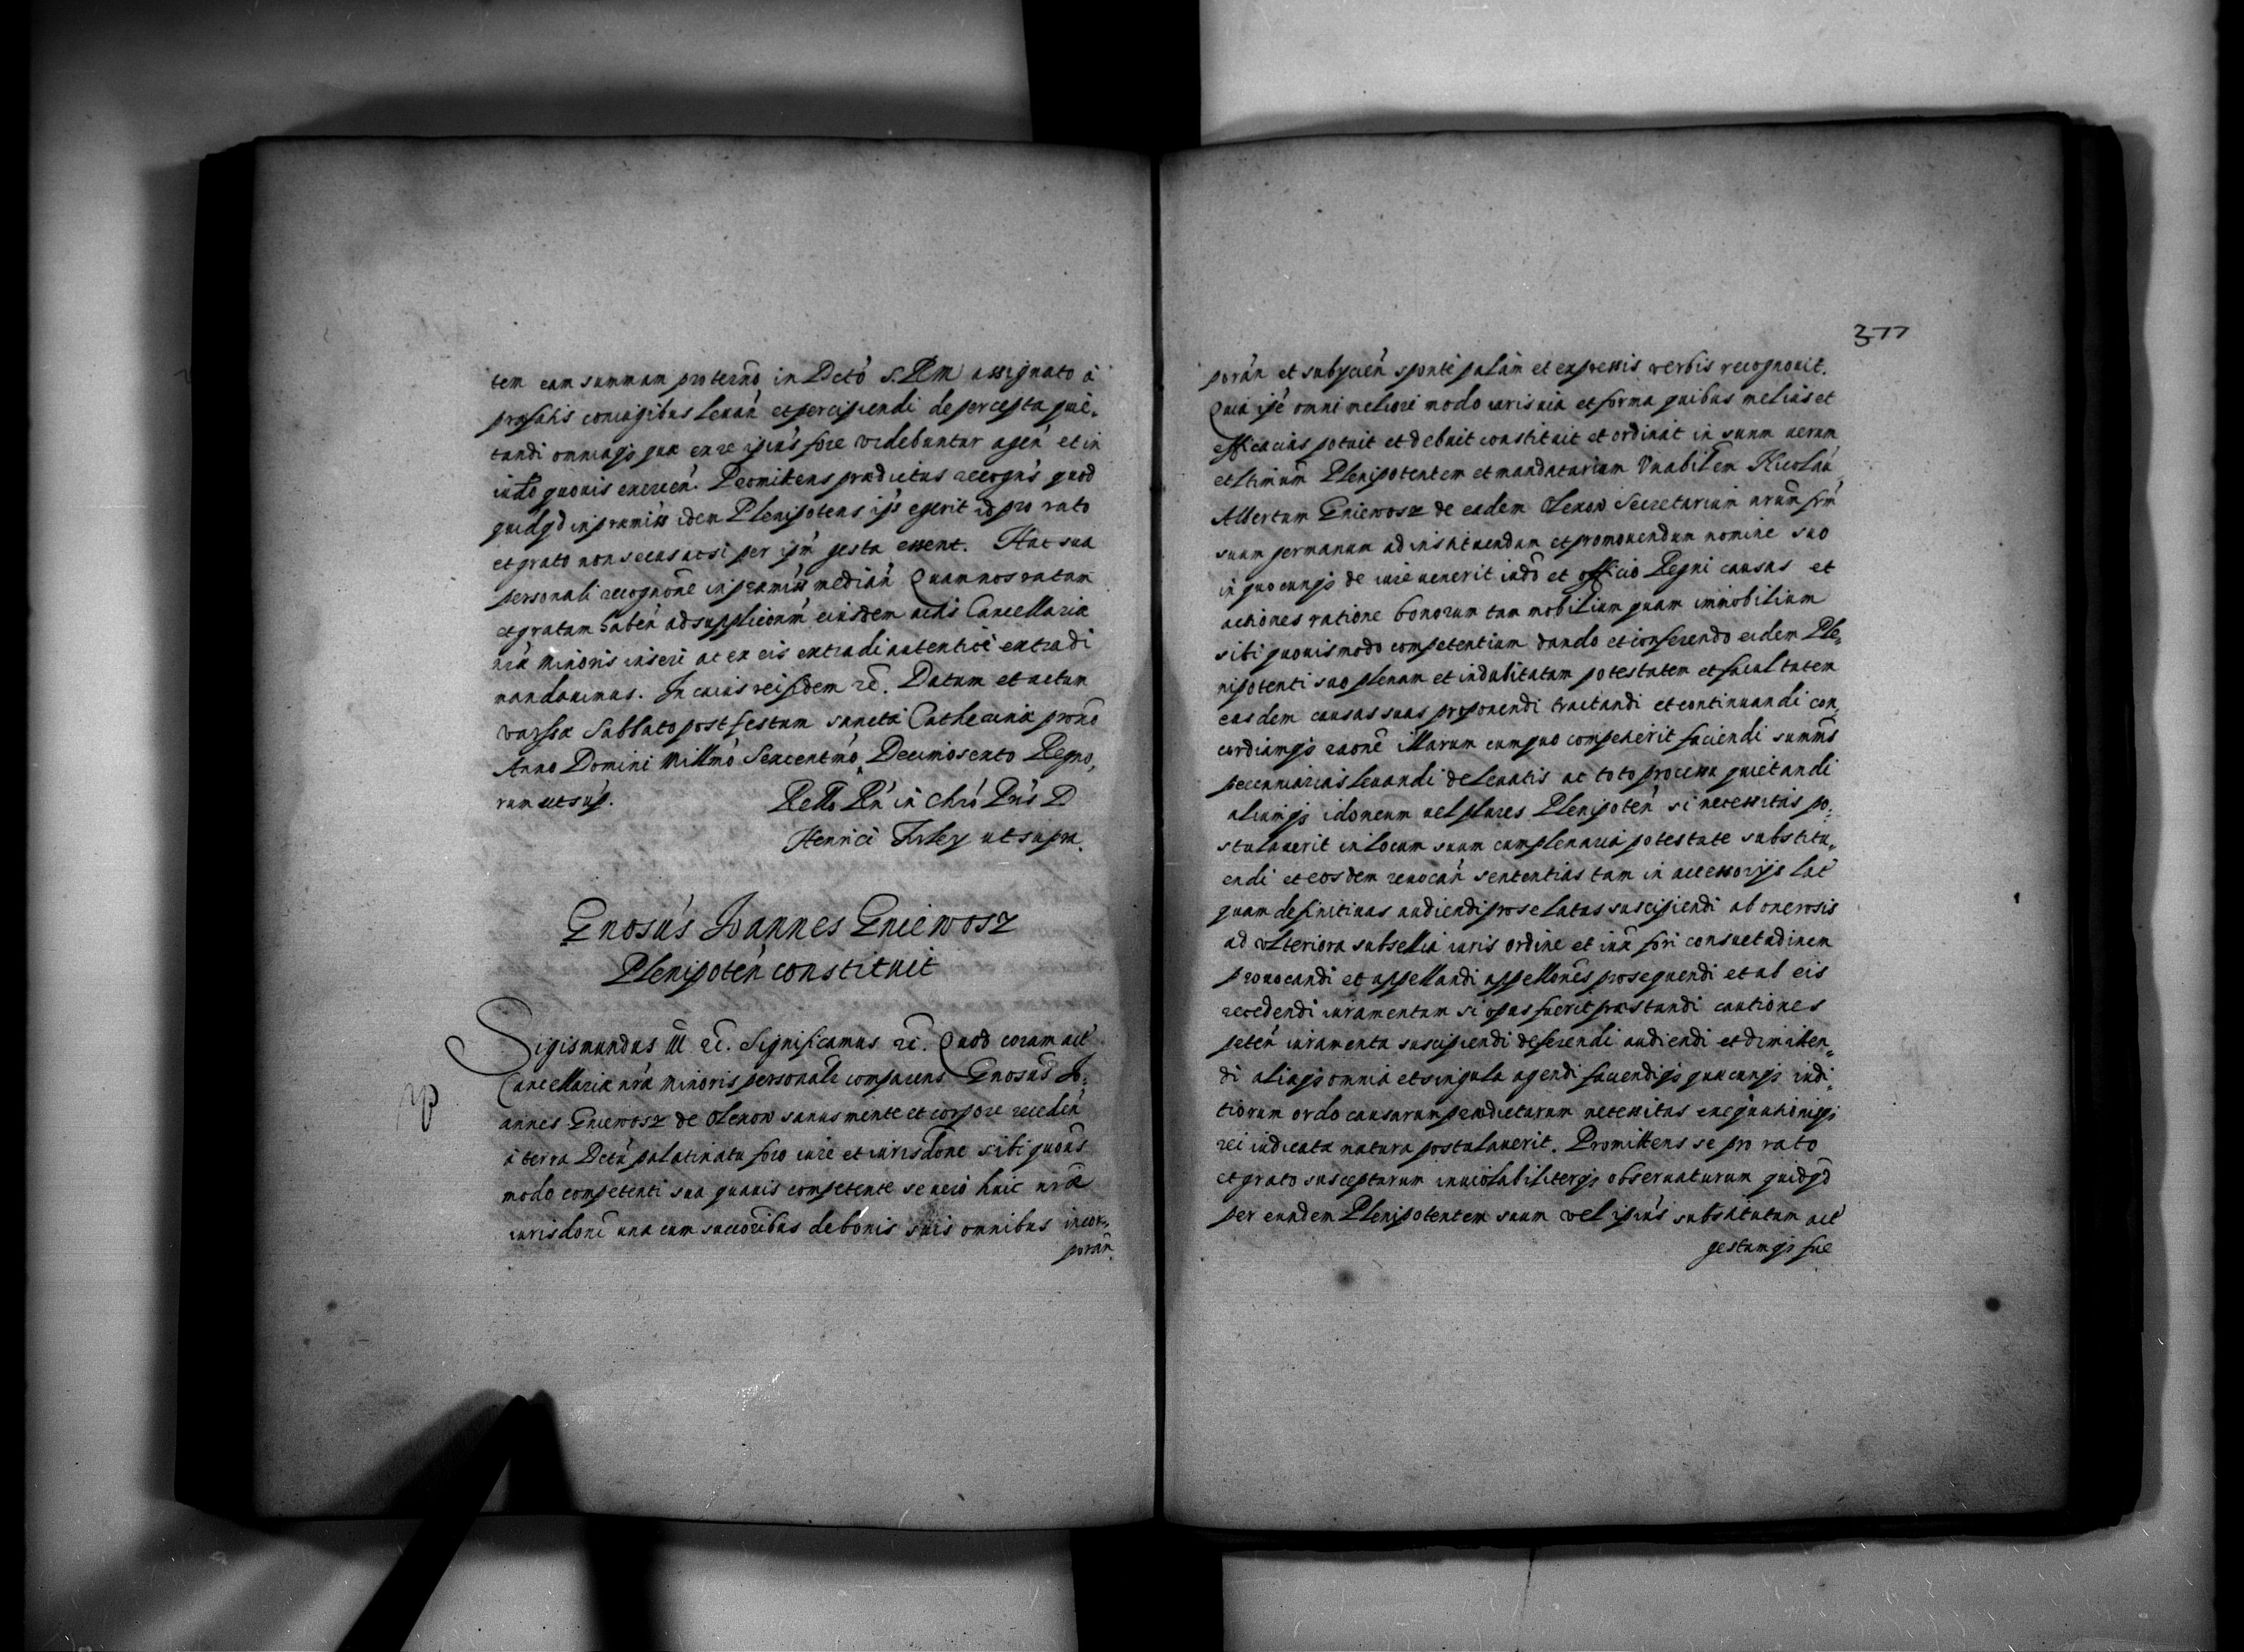 tem eam summam pro termo in Dcto S. R M assignato à
prefatis coniugibus leuan et percipiendi de percepta quie,
tandi omniaqs quæ ex re ipius fore videbuntur agen et in
iudo quouis exercen. Promittens prædictus recogns quod
quidqd in præmiss idem Plenipotens ips egerit id pro rato
et grato non secus ac si per ipm gesta essent. Hac sua
personali recognone in præmiss median Quam nos ratam
et gratam haben ad supplicaom eiusdem actis Cancellariæ
nræ Minoris inseri ac ex eis extradi autentice extradi
mandauimus. In cuius rei fidem rc. Datum et actum
Varssæ Sabbato post festum sanctæ Catherinæ promo
Anno Domini Millmo Sexcentmo Decimosexto Regno,
rum ut sup. Rello Rn in Chro Pris D
Henrici Firley ut supra.
Gnosus Joannes Gniewosz
Plenipoten constituit
Sigismundus III rc. Significamus rc. Quod coram act
Cancellariæ nræ Minoris personalr comparens Gnosus Jo,
annes Gniewosz de Olexow sanus mente et corpore receden
à terra Dctu palatinatu foro iure et iurisdone sibi quous
modo competenti sua quauis competente se uero huic nræ
iurisdoni una cum succoribus de bonis suis omnibus incor,
poran
377
poran et subycien sponte palam et expressis verbis recognouit.
Quia ipe omni meliori modo iuris uia et forma quibus melius et
efficacius potuit et debuit constituit et ordinat in suum uerum
et ltimum Plenipotentem et mandatarium Vnabilem Nicolau
Albertum Gniewosz de eadem Olexow Secretarium nrum frm
suum germanum ad instituendum et promouendum nomine suo
in quocunqs de iure uenerit iudo et officio Regni causas et
actiones ratione bonorum tam mobilium quam immobilium
sibi quouismodo competentium dando et conferendo eidem Ple,
nipotenti suo plenam et indubitatam potestatem et facultatem
easdem causas suas proponendi tractandi et continuandi con,
cordiamqs raone illarum cum quo competierit faciendi summs
pecuniarias leuandi de leuatis ac toto processu quietandi
aliumqs idoneum uel plures Plenipoten si necessitas po,
stulauerit in locum suum cum plenaria potestate substitu,
endi et eosdem reuocan sententias tam in accessorijs lat
quam definitiuas audiendi prose latas suscipiendi ab onerosis
ad vlteriora subsellia iuris ordine et iux fori consuetudinem
prouocandi et appellandi appellones prosequendi et ab eis
recedendi iuramentum si opus fuerit præstandi cautiones
peten iuramenta suscipiendi deferendi audiendi et dimitten,
di aliaqs omnia et singula agendi faciendiqs quæcunqs iudi,
tiorum ordo causarum prædictarum necessitas exequutionisqs
rei iudicatæ natura postulauerit. Promittens se pro rato
et grato suscepturum inuiolabiliterqs obseruaturum quidqd
per eundem Plenipotentem suum vel ipius substitutum act
gestumqs fue